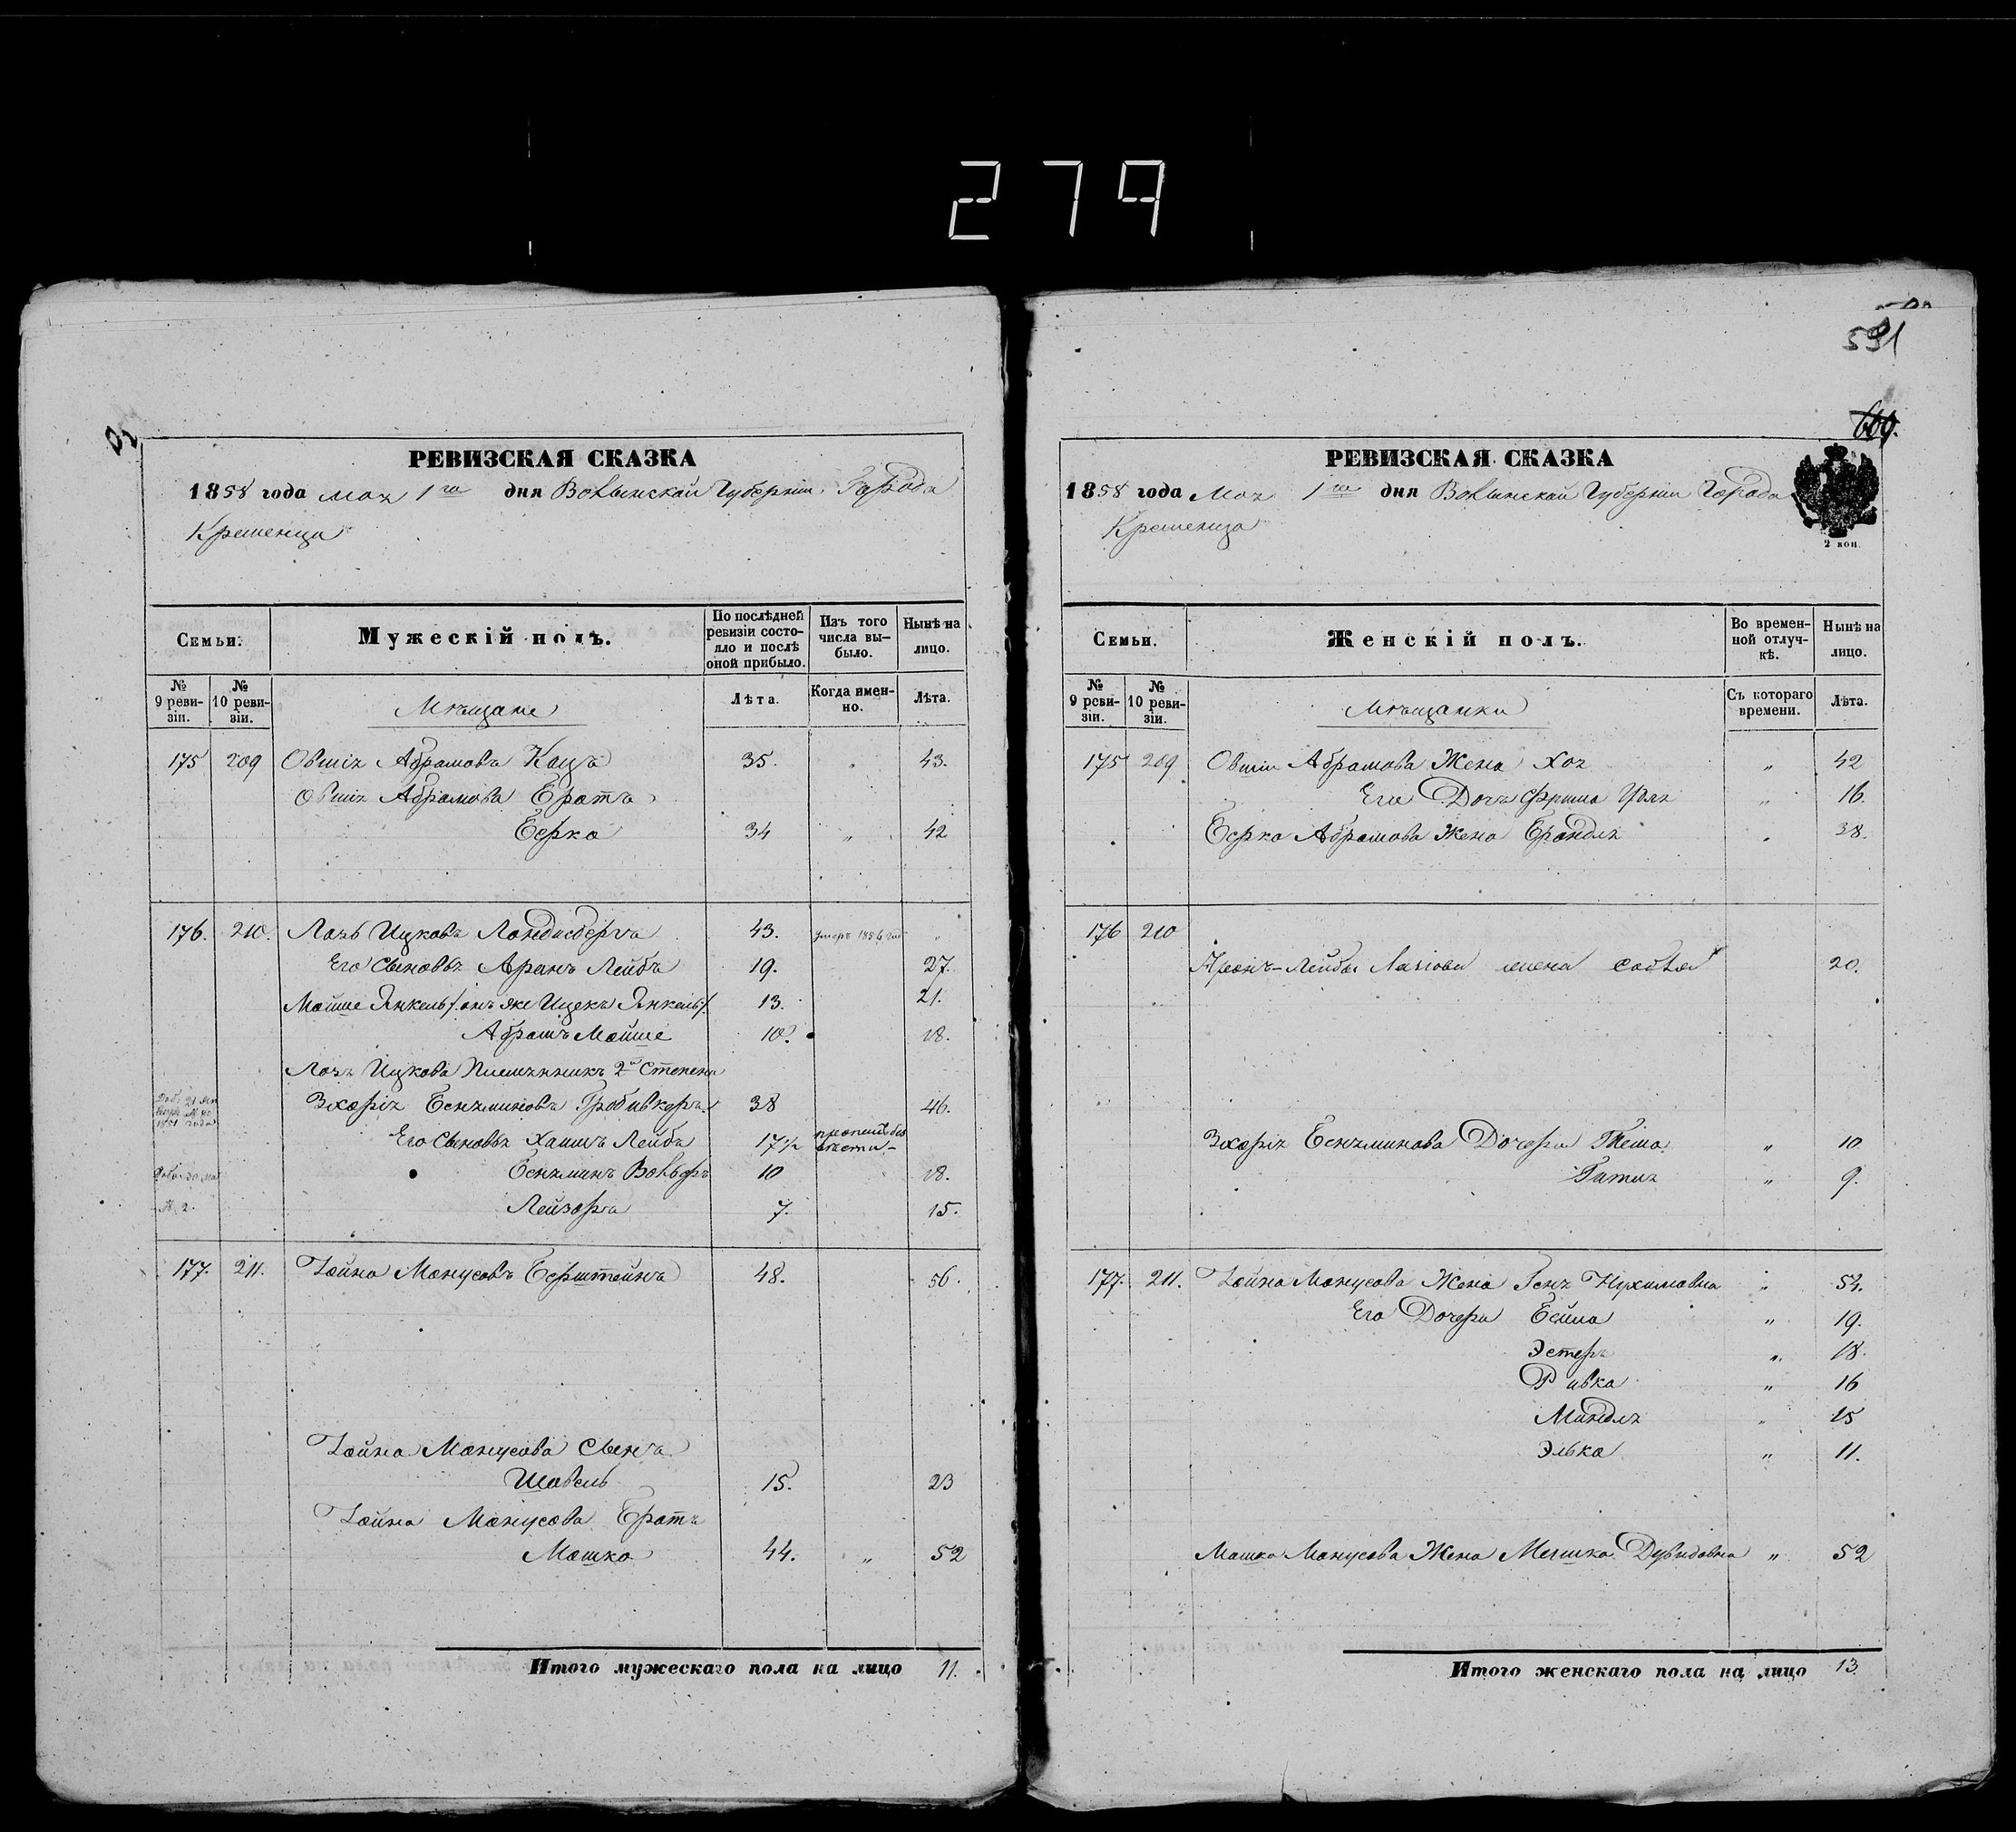 279
РЕВИЗСКАЯ СКАЗКА
1858 года мая 1го дня Волынской Губернии Города
Кременца
Семьи.
Мужескій полъ.
По послѣдней ревизіи состояло и послѣ оной прибыло.
Изъ того числа выбыло.
Нынѣ на лицо.
№ 9 ревизіи.
№ 10 ревизіи.
Мѣщане
Лѣта.
Когда именно.
Лѣта.
175 209 Овшія Абрамовъ Кацъ 35. " 43.
Овшія Абрамова Братъ
Берко 34 " 42
176. 210. Лазь Ицковъ Ландисбергъ 43. умеръ "
Его Сыновья Аронъ Лейбъ 19. 27.
Мойше Янкель /: онъ же Ицекъ Янкель :/ 13. 21.
Абрамъ Мойше 10. 18.
Лазя Ицкова Племянникъ 2й Степени
Зхорія Беняминовъ 38 46.
Его Сыновья Хаимъ Лейбъ 17½
Беняминъ Вольфъ 10 18.
Лейзоръ 7. 15.
177. 211. Іойна Манусовъ Берштейнъ 48. 56.
Іойна Манусова Сынъ
Шовель 15. 23
Іойна Манусова Братъ
Мошко 44. " 52
Итого мужескаго пола на лицо 11.
591
609.
РЕВИЗСКАЯ СКАЗКА
1858 года Мая 1го дня Волынской Губернии Города
Кременца
2 коп.
Семьи.
Женскій полъ.
Во временной отлучкѣ.
Нынѣ на лицо.
№ 9 ревизіи.
№ 10 ревизіи.
Мѣщанки
Съ котораго времени.
Лѣта.
175 209 Овшіи Абрамова Жена Хая " 42
Его Дочь Фрима " 16.
Берка Абрамова Жена Брандля " 38.
176 210
Аронъ-Лейбы Лазіова жена 20.
Зхорія Беняминова Дочери Тема " 10
Гитля " 9.
177. 211. Іойна Манусова Жена Геня Нухимовна " 54.
Его Дочери Бейла " 19.
Эстеръ " 18.
Ривка " 16
Миндля " 15
Элька " 11.
Машка Манусова Жена Дувидовна " 52
Итого женскаго пола на лицо 13